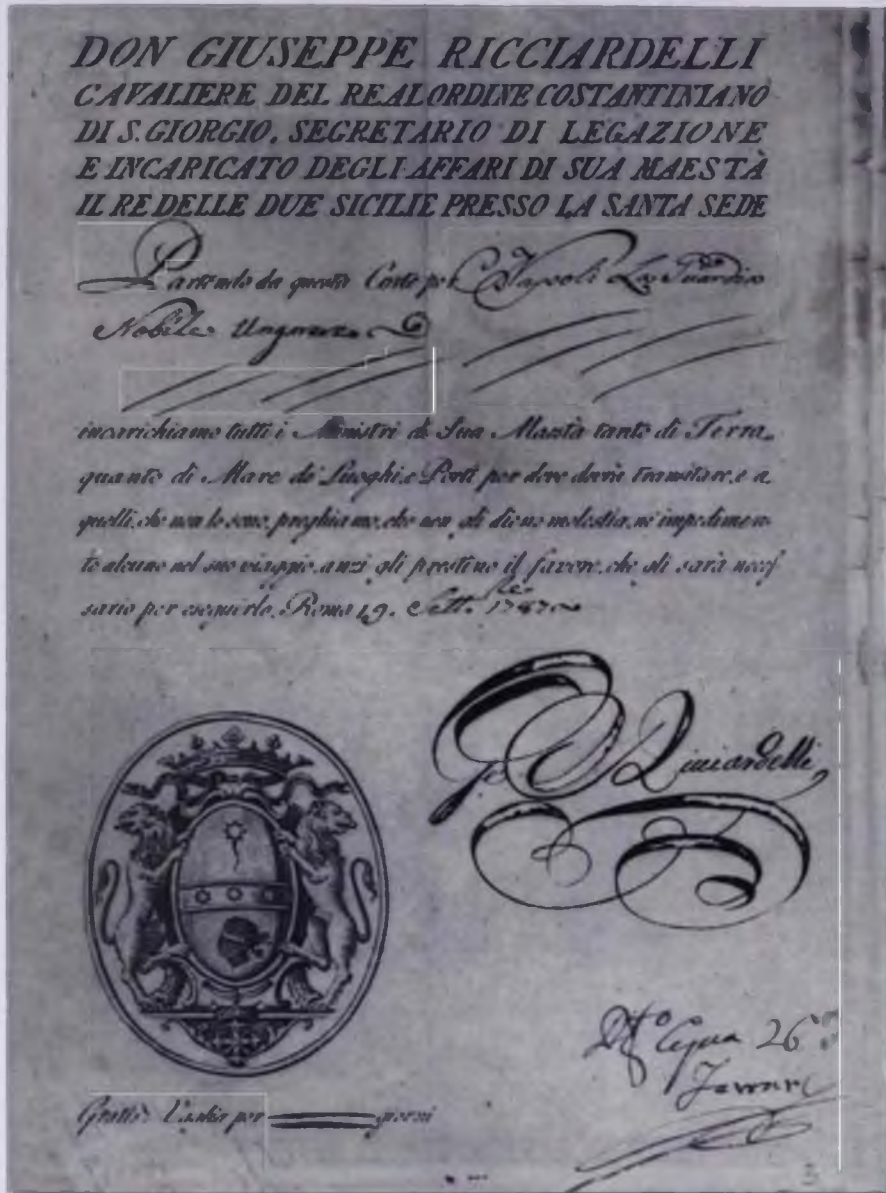 DON GIUSEPPE RICCIARDELLI
CAVALIERE DEL REAL ORDINE COSTANTINIANO
DI S. GIORGIO, SEGRETARIO DI LEGAZIONE
E INCARICATO DEGLI AFFARI DI SUA MAESTÀ
IL RE DELLE DUE SICILIE PRESSO LA SANTA SEDE
Partendo da questa Corte per Napoli La Guardia
Nobile Ungarese
incarichiamo tutti i Ministri di Sua Maestà tanto di Terra,
quanto di Mare de' Luoghi, e Porti per dove dovrà transitare, e a
quelli, che non lo sono, preghiamo, che non gli diano molestia, nè impedimen-
to alcuno nel suo viaggio, anzi gli prestino il favore, che gli sarà necef
sario per eseguirlo. Roma 19. Sett.bre
Ricciardelli
26
Gratis per giorni
3